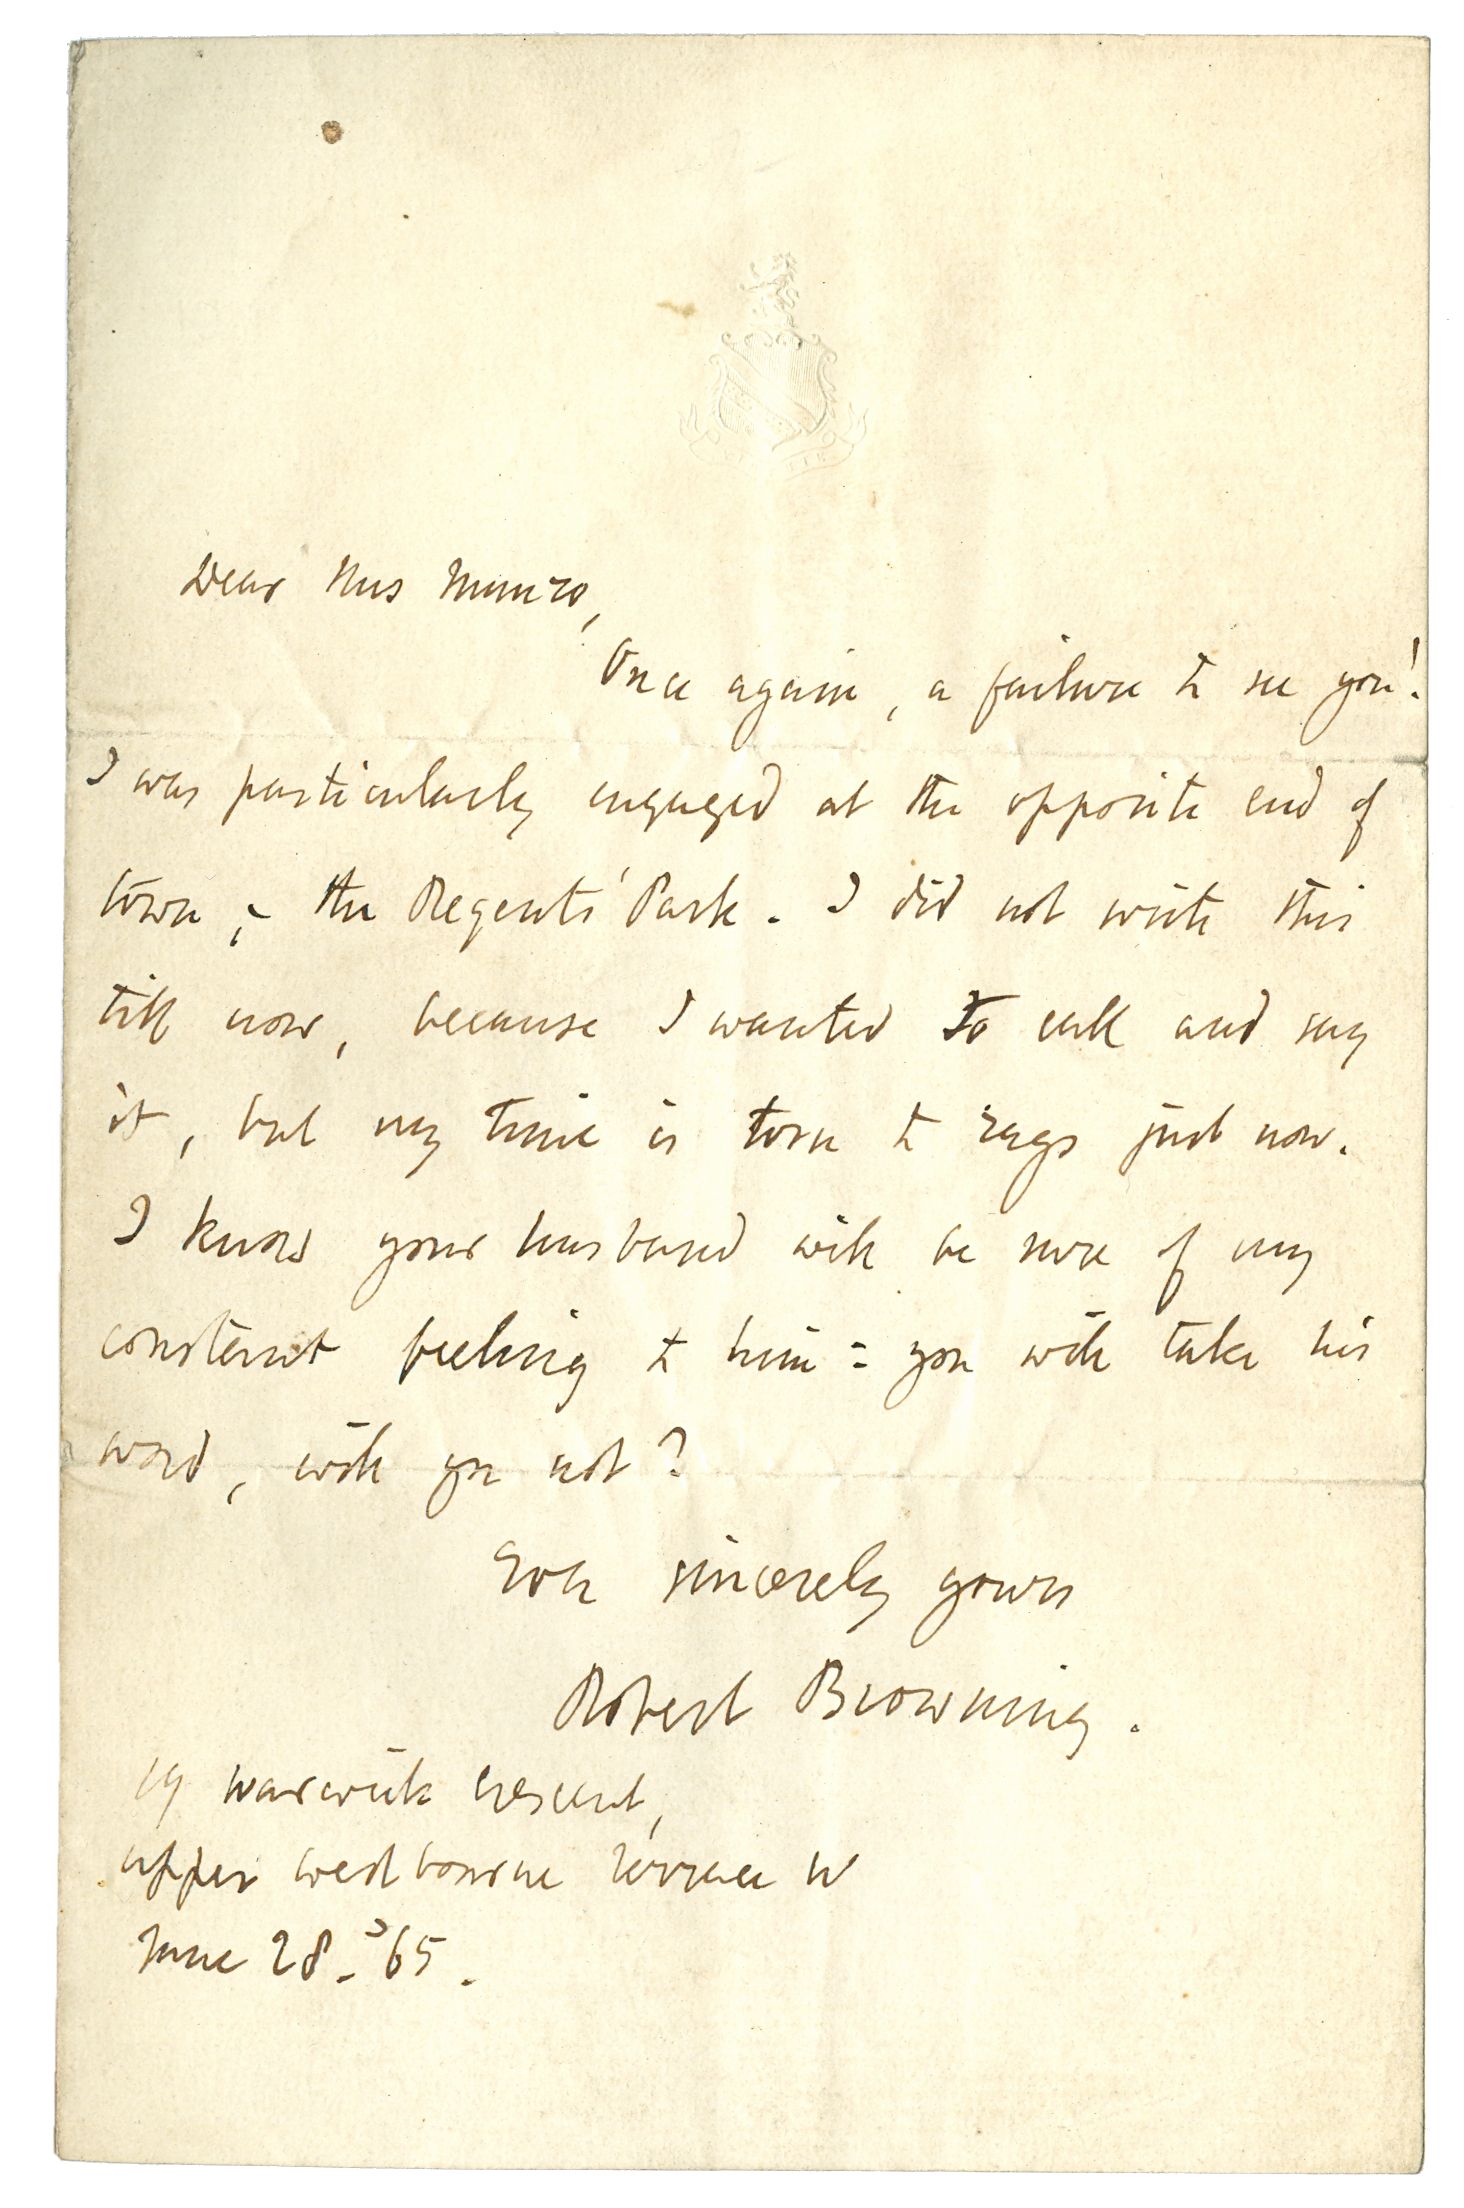 Dear Mrs Munro,
Once again, a failure to see you!
I was particularly engaged at the opposite end of
town, - the Regents' Park. I did not write this
till now, because I wanted to call and say
it, but my time is torn to rags just now.
I know your husband will be sure of my
constant feeling to him: you will take his
word, will you not?
Ever sincerely yours
Robert Browning.
19 Warwick Crescent,
Upper Westbourne Terrace W
June 28. '65.